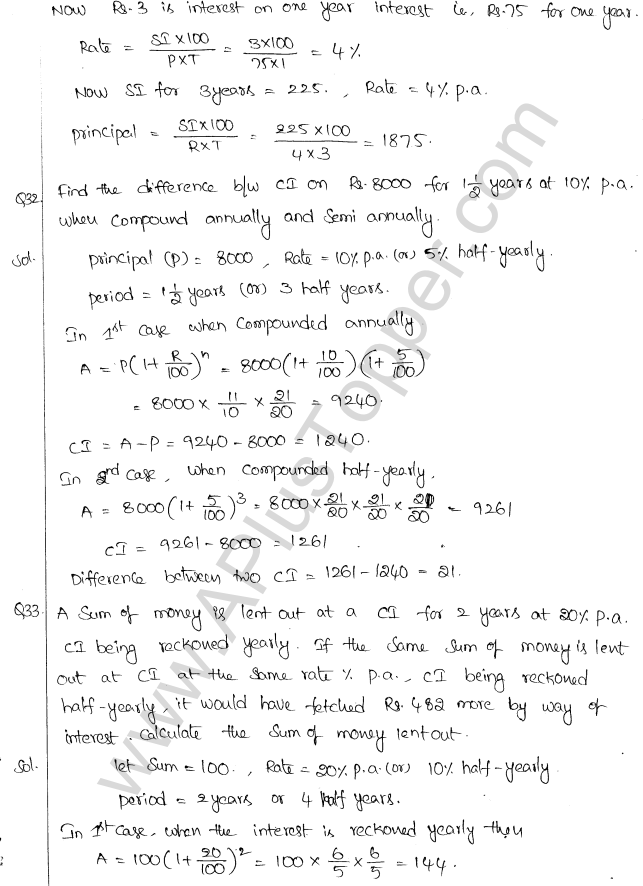 Now Rs. 3 is interest on one year interest ie, Rs.75 for one year.
Rate = SI×100 / P×T = 3×100 / 75×1 = 4%
Now SI for 3 years = 225. , Rate = 4% p.a.
principal = SI×100 / R×T = 225×100 / 4×3 = 1875.
Q32. Find the difference b/w CI on Rs. 8000 for 1 1/2 years at 10% p.a.
when compound annually and Semi annually.
Sol. principal (P) = 8000 , Rate = 10% p.a. (or) 5% half-yearly.
period = 1 1/2 years (or) 3 half years.
In 1st case when compounded annually
A = P(1+ R/100)^n = 8000(1+ 10/100)(1+ 5/100)
= 8000 × 11/10 × 21/20 = 9240.
CI = A-P = 9240 - 8000 = 1240.
In 2nd case, when compounded half-yearly.
A = 8000(1+ 5/100)^3 = 8000 × 21/20 × 21/20 × 21/20 = 9261
CI = 9261 - 8000 = 1261
Difference between two CI = 1261 - 1240 = 21.
Q33. A Sum of money is lent out at a CI for 2 years at 20% p.a.
CI being reckoned yearly. If the Same Sum of money is lent
out at CI at the Same rate % p.a., CI being reckoned
half-yearly, it would have fetched Rs. 482 more by way of
interest. Calculate the Sum of money lent out.
Sol. let Sum = 100. , Rate = 20% p.a. (or) 10% half-yearly
period = 2 years or 4 half years.
In 1st case, when the interest is reckoned yearly then
A = 100(1+ 20/100)^2 = 100 × 6/5 × 6/5 = 144.
www.APlusTopper.com